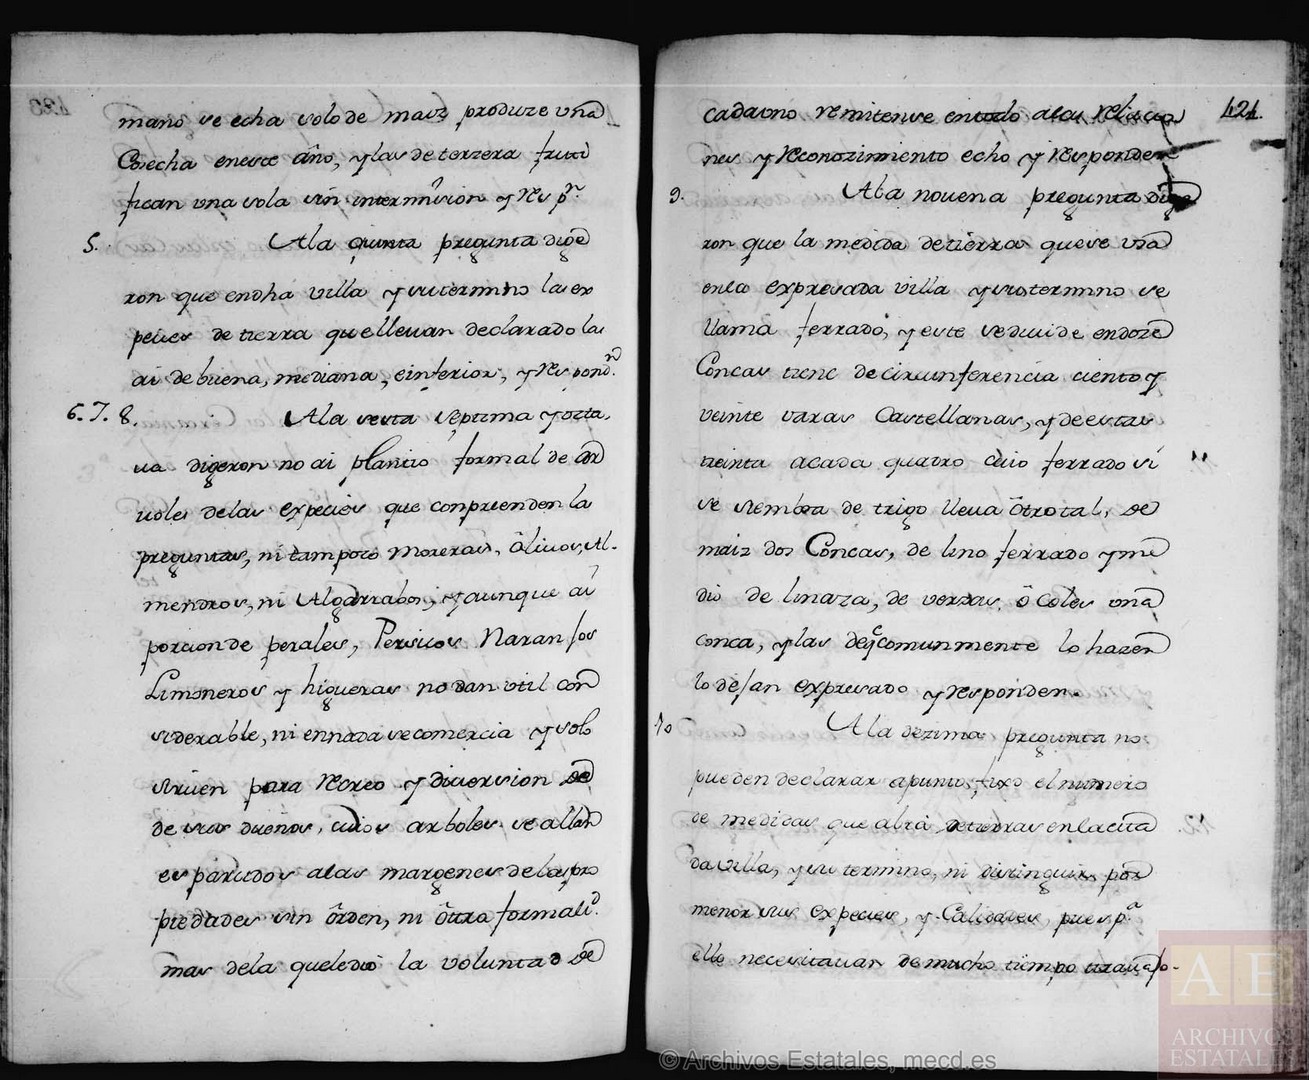 mano se echa solo de maiz produze una
Cosecha eneste año, y las de terzera fruti
fican una sola sin intermision y resp.n
5. Ala quinta pregunta dige
ron que endha villa y su termino las es
pecies de tierra que llevan declarado las
ai de buena, mediana, e inferior, y respond.n
6. 7. 8. Ala sesta septima y octa,
va digeron no ai plantio formal de Ar
voles delas especies que conprenden la
preguntas, ni tampoco moreras, ôlivos, Al-
mendros, ni Algarrabos, y aunque ai
porcion de perales, Persicos Naranjos
Limoneros y higueras no dan util con
siderable, ni ennada se comercia y solo
sirven para recreo y diversion de
de sus dueños, cuios arboles se allan
esparcidos alas margenes de las pro
piedades sin ôrden, ni ôtra formalid.
mas dela queledio la voluntad de
cadauno remitense entodo ala relacio
nes y reconozimiento echo y responden
421.
9. Ala novena pregunta dige
ron que la medida detierra que se usa
enla expresada villa y su termino se
llama ferrado, y este se divide endoze
Concas tiene de circunferencia ciento y
veinte varas Castellanas, y de estas
treinta acada quatro cuio ferrado si
se siembra de trigo lleva ôtro tal, de
maiz dos Concas, de lino ferrado y me
dio de linaza, de verzas ô Coles una
conca, y las deq.e comunmente lo hazen
lo dejan expresado y responden.
10 Ala dezima pregunta no
pueden declarar apunto fixo el numero
de medidas que abrá de tierras enla cita
da villa, y su termino, ni distinguir por
menor sus especies, y Calidades, pues p.a
ello necesitavan de mucho tiempo travajo-
© Archivos Estatales, mecd.es
AE
ARCHIVOS
ESTATALES